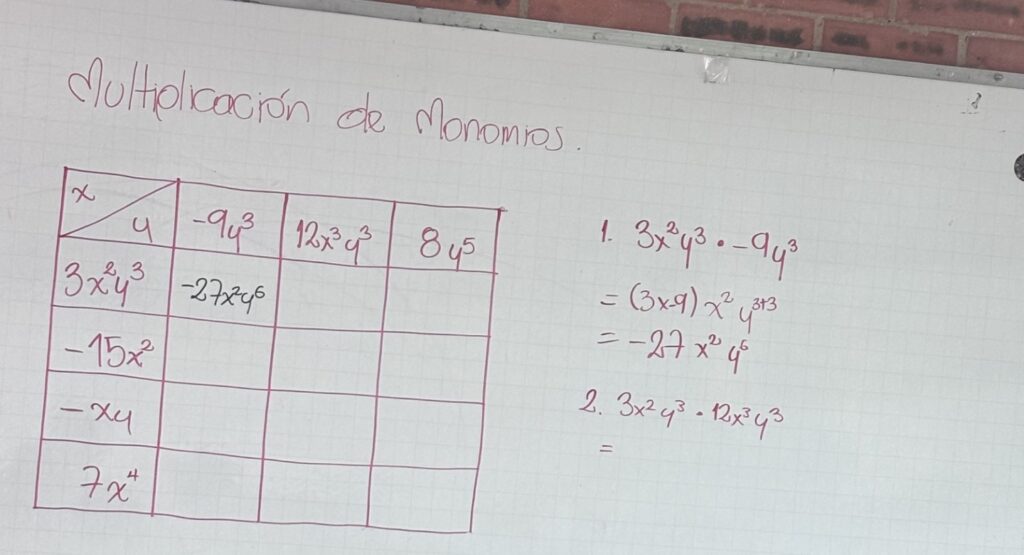 Multiplicación de Monomios.
x y -9y³ 12x³y³ 8y⁵
3x²y³ -27x²y⁶
-15x²
-xy
7x⁴
1. 3x²y³ · -9y³
= (3x-9) x² y³⁺³
= -27 x² y⁶
2. 3x²y³ · 12x³y³
=